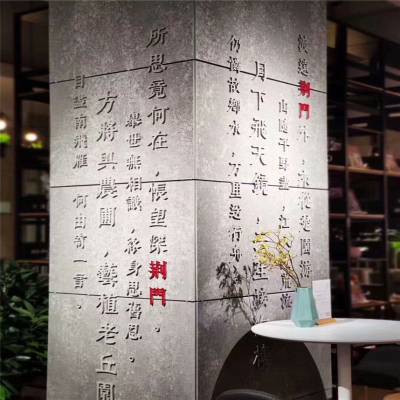 渡遠荊門外,來從楚國游
山隨平野盡,江入大荒流
月下飛天鏡,雲生結海樓
仍憐故鄉水,萬里送行舟
所思竟何在,悵望深荊門。
舉世無相識,終身思舊恩。
方將與農圃,藝植老丘園
目盡南飛雁 何由寄一言。